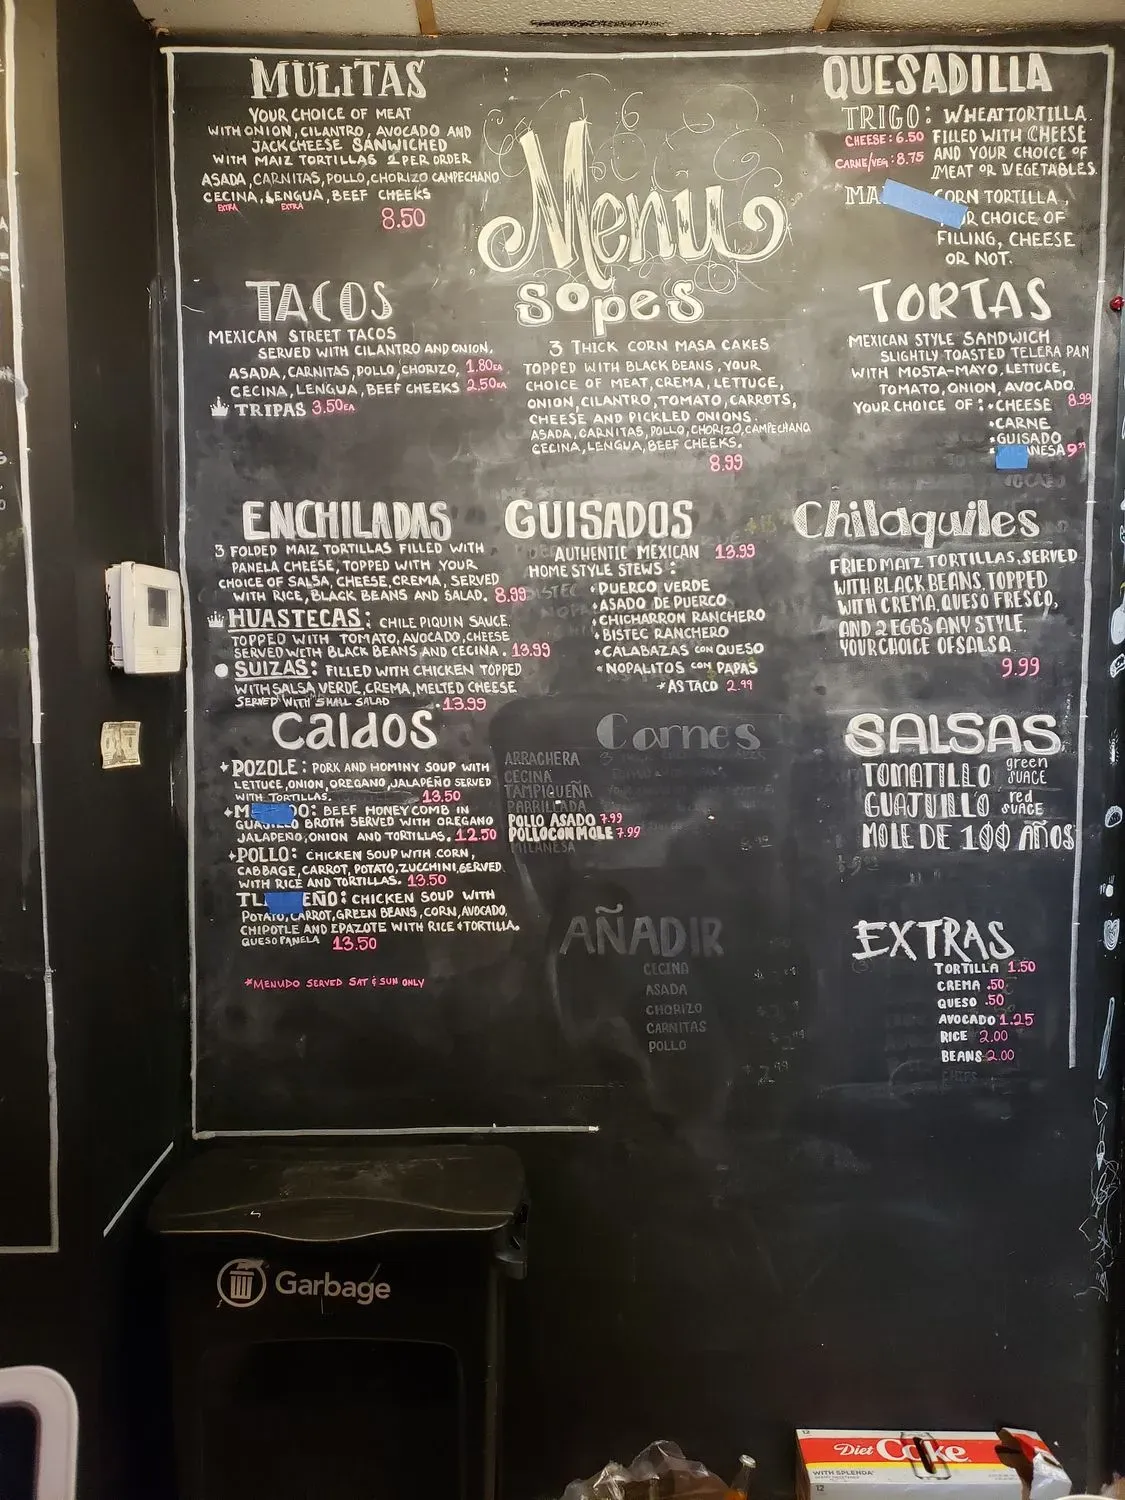 MULITAS
YOUR CHOICE OF MEAT
WITH ONION, CILANTRO, AVOCADO AND
JACK CHEESE SANWICHED
WITH MAIZ TORTILLAS 2 PER ORDER
ASADA, CARNITAS, POLLO, CHORIZO CAMPECHANO
CECINA, LENGUA, BEEF CHEEKS
EXTRA EXTRA
8.50
Menu
QUESADILLA
TRIGO: WHEAT TORTILLA.
CHEESE: 6.50 FILLED WITH CHEESE
CARNE/VEG: 8.75 AND YOUR CHOICE OF
MEAT OR VEGETABLES.
MA
ORN TORTILLA,
R CHOICE OF
FILLING, CHEESE
OR NOT.
TACOS
MEXICAN STREET TACOS
SERVED WITH CILANTRO AND ONION,
ASADA, CARNITAS, POLLO, CHORIZO, 1.80EA
CECINA, LENGUA, BEEF CHEEKS 2.50EA
TRIPAS 3.50EA
sopes
3 THICK CORN MASA CAKES
TOPPED WITH BLACK BEANS, YOUR
CHOICE OF MEAT, CREMA, LETTUCE,
ONION, CILANTRO, TOMATO, CARROTS,
CHEESE AND PICKLED ONIONS.
ASADA, CARNITAS, POLLO, CHORIZO, CAMPECHANO
CECINA, LENGUA, BEEF CHEEKS.
8.99
TORTAS
MEXICAN STYLE SANDWICH
SLIGHTLY TOASTED TELERA PAN
WITH MOSTA-MAYO, LETTUCE,
TOMATO, ONION, AVOCADO.
YOUR CHOICE OF: •CHEESE 8.99
•CARNE
•GUISADO
NESA 9
ENCHILADAS
3 FOLDED MAIZ TORTILLAS FILLED WITH
PANELA CHEESE, TOPPED WITH YOUR
CHOICE OF SALSA, CHEESE, CREMA, SERVED
WITH RICE, BLACK BEANS AND SALAD. 8.99
HUASTECAS: CHILE PIQUIN SAUCE.
TOPPED WITH TOMATO, AVOCADO, CHEESE
SERVED WITH BLACK BEANS AND CECINA. 13.99
SUIZAS: FILLED WITH CHICKEN TOPPED
WITH SALSA VERDE, CREMA, MELTED CHEESE
SERVED WITH SMALL SALAD .13.99
GUISADOS
AUTHENTIC MEXICAN 13.99
HOME STYLE STEWS:
•PUERCO VERDE
•ASADO DE PUERCO
•CHICHARRON RANCHERO
•BISTEC RANCHERO
•CALABAZAS CON QUESO
•NOPALITOS CON PAPAS
*AS TACO 2.99
Chilaquiles
FRIED MAIZ TORTILLAS, SERVED
WITH BLACK BEANS, TOPPED
WITH CREMA, QUESO FRESCO,
AND 2 EGGS ANY STYLE.
YOUR CHOICE OF SALSA.
9.99
Caldos
POZOLE: PORK AND HOMINY SOUP WITH
LETTUCE, ONION, OREGANO, JALAPEÑO SERVED
WITH TORTILLAS. 13.50
M DO: BEEF HONEYCOMB IN
GUAJILLO BROTH SERVED WITH OREGANO
JALAPEÑO, ONION AND TORTILLAS. 12.50
POLLO: CHICKEN SOUP WITH CORN,
CABBAGE, CARROT, POTATO, ZUCCHINI, SERVED
WITH RICE AND TORTILLAS. 13.50
TL EÑO: CHICKEN SOUP WITH
POTATO, CARROT, GREEN BEANS, CORN, AVOCADO,
CHIPOTLE AND EPAZOTE WITH RICE + TORTILLA.
QUESO PANELA 13.50
*MENUDO SERVED SAT & SUN ONLY
Carnes
ARRACHERA
CECINA
TAMPIQUEÑA
PARRILLADA
POLLO ASADO 7.99
POLLO CON MOLE 7.99
MILANESA
AÑADIR
CECINA
ASADA
CHORIZO
CARNITAS
POLLO
SALSAS
TOMATILLO green SUACE
GUAJILLO red SUACE
MOLE DE 100 AÑOS
EXTRAS
TORTILLA 1.50
CREMA .50
QUESO .50
AVOCADO 1.25
RICE 2.00
BEANS 2.00
CHIPS
Garbage
Diet Coke
WITH SPLENDA
12